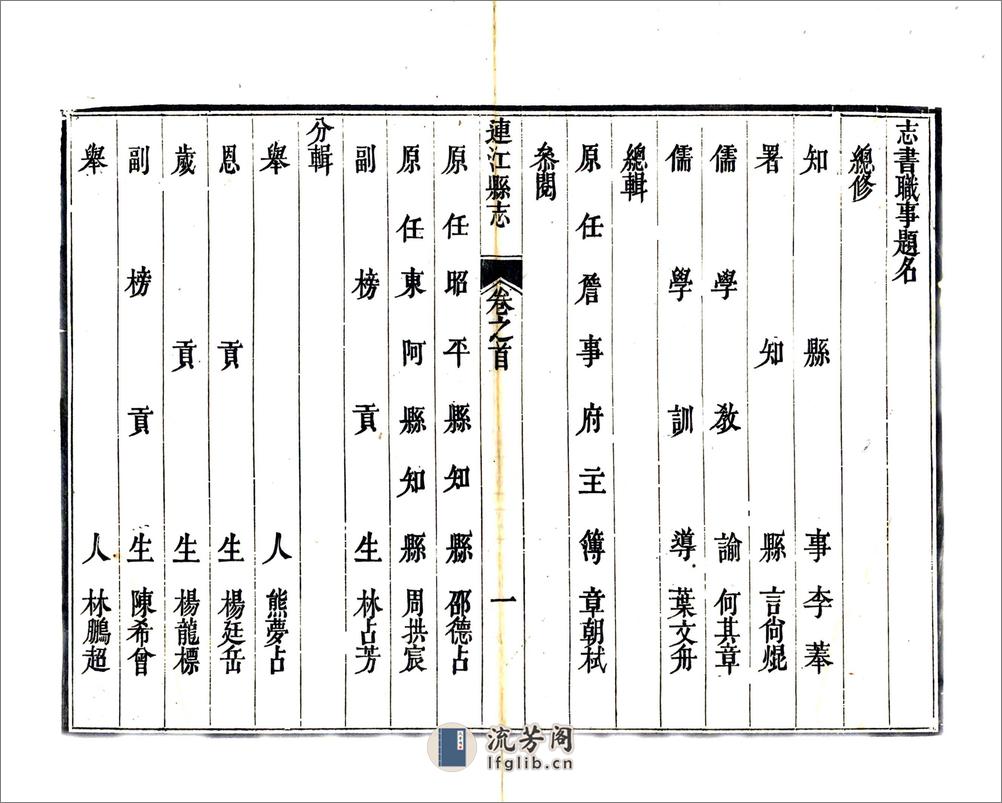 志書職事題名
總修
知縣事李菶
署知縣言尙焜
儒學教諭何其章
儒學訓導葉文舟
總輯
原任詹事府主簿章朝栻
叅閱
連江縣志
卷之首
一
原任昭平縣知縣邵德占
原任東阿縣知縣周拱宸
副榜貢生林占芳
分輯
舉人熊夢占
恩貢生楊廷岳
歲貢生楊龍標
副榜貢生陳希曾
舉人林鵬超
流芳阁
lfglib.cn